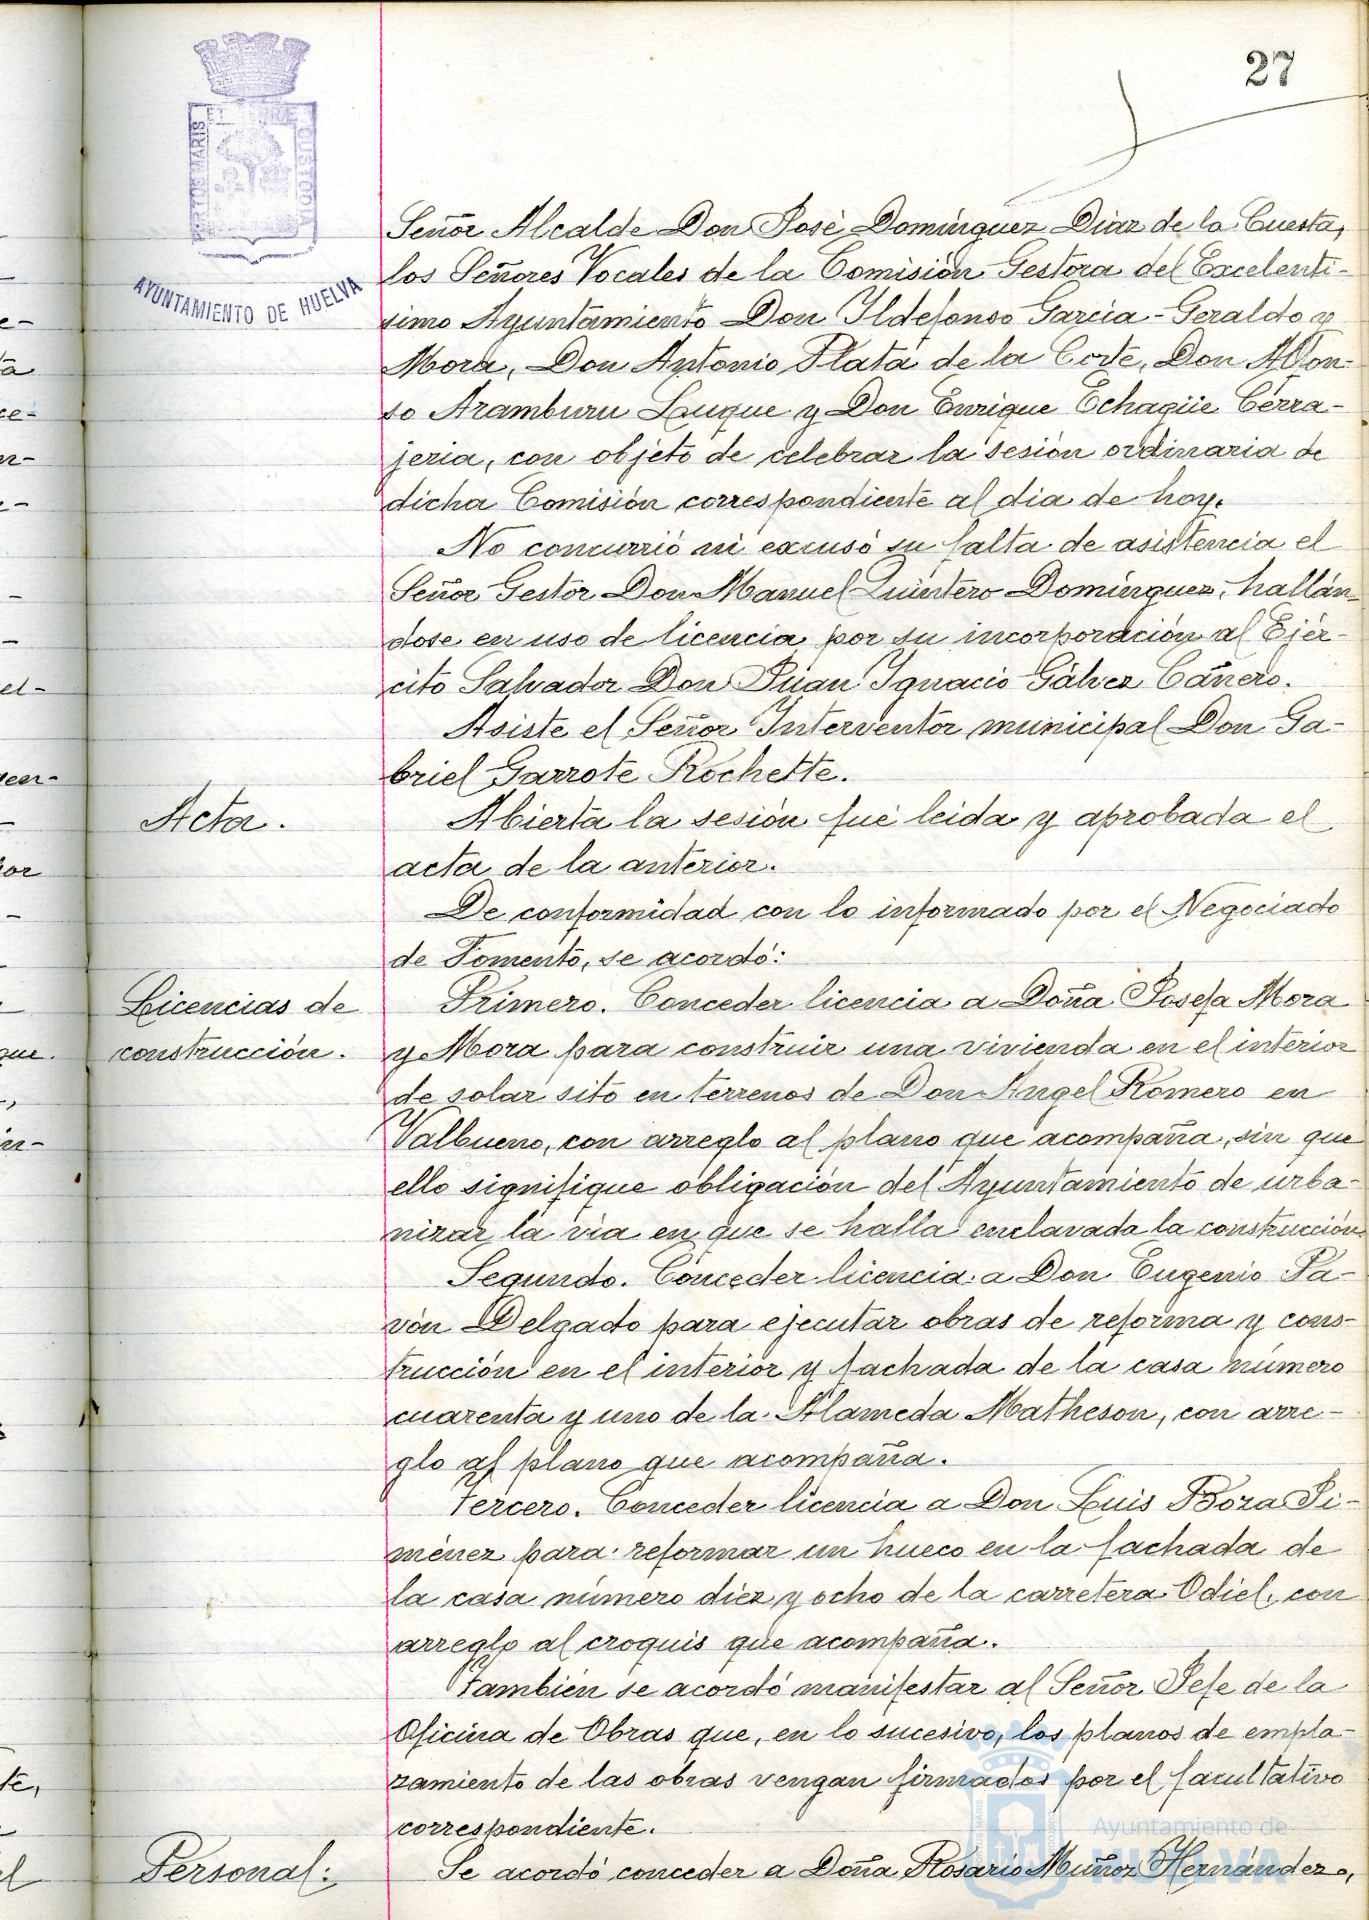 27
PORTUS MARIS ET TERRÆ CUSTODIA
AYUNTAMIENTO DE HUELVA
Señor Alcalde Don José Domínguez Diaz de la Cuesta,
los Señores Vocales de la Comisión Gestora del Excelentí-
simo Ayuntamiento Don Ildefonso Garcia-Geraldo y
Mora, Don Antonio Plata de la Corte, Don Alfon-
so Aramburu Luque y Don Enrique Echagüe Cerra-
jeria, con objeto de celebrar la sesión ordinaria de
dicha Comisión correspondiente al dia de hoy.
No concurrió ni excusó su falta de asistencia el
Señor Gestor Don Manuel Quintero Domínguez, hallán-
dose en uso de licencia por su incorporación al Ejér-
cito Salvador Don Juan Ignacio Gálvez Cañero.
Asiste el Señor Interventor municipal Don Ga-
briel Garrote Rochette.
Acta.
Abierta la sesión fué leida y aprobada el
acta de la anterior.
De conformidad con lo informado por el Negociado
de Fomento, se acordó:
Licencias de
construcción.
Primero. Conceder licencia a Doña Josefa Mora
y Mora para construir una vivienda en el interior
de solar sito en terrenos de Don Angel Romero en
Valbueno, con arreglo al plano que acompaña, sin que
ello signifique obligación del Ayuntamiento de urba-
nizar la via en que se halla enclavada la construcción.
Segundo. Conceder licencia a Don Eugenio Pa-
vón Delgado para ejecutar obras de reforma y cons-
trucción en el interior y fachada de la casa número
cuarenta y uno de la Alameda Matheson, con arre-
glo al plano que acompaña.
Tercero. Conceder licencia a Don Luis Boza Ji-
ménez para reformar un hueco en la fachada de
la casa número diez y ocho de la carretera Odiel, con
arreglo al croquis que acompaña.
También se acordó manifestar al Señor Jefe de la
Oficina de Obras que, en lo sucesivo, los planos de empla-
zamiento de las obras vengan firmados por el facultativo
correspondiente.
Personal:
Se acordó conceder a Doña Rosario Muñoz Hernández,
Ayuntamiento de
HUELVA